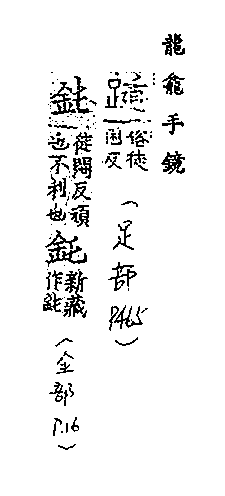 龍龕手鏡
俗徒困反（足部P465）
鈍徒悶反頑也不利也 新藏作鈍（金部P.16）